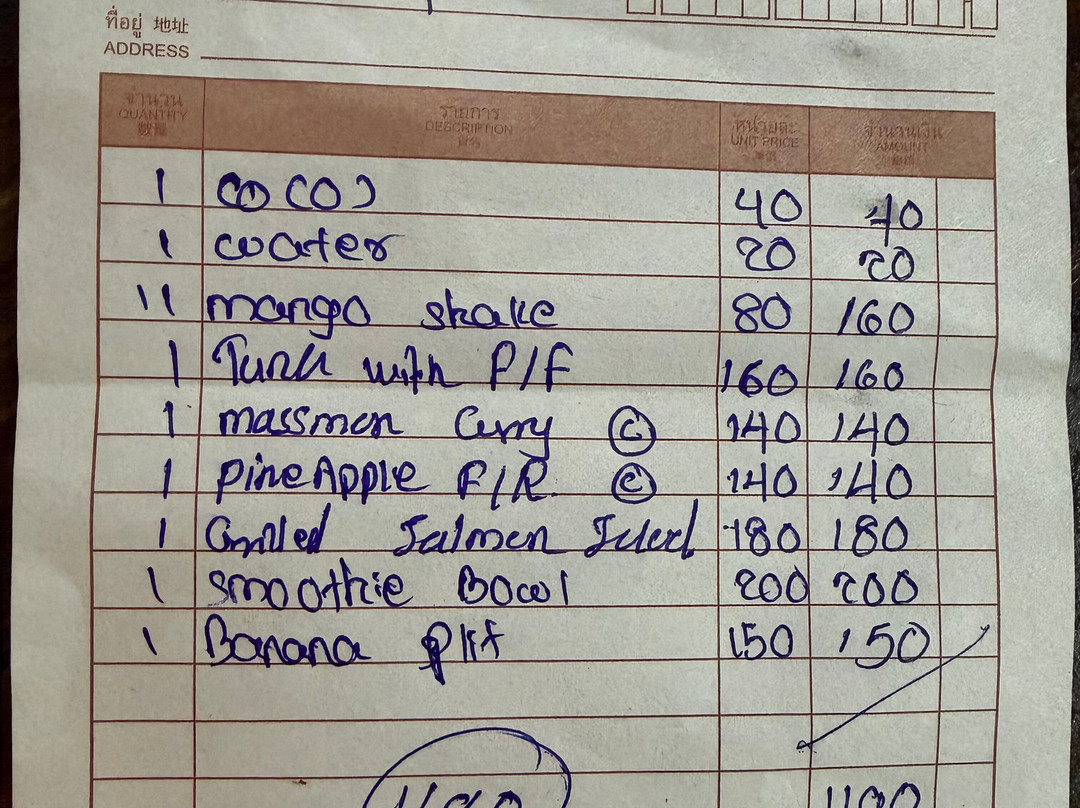 ที่อยู่ 地址
ADDRESS
จำนวน รายการ หน่วยละ จำนวนเงิน
QUANTITY DESCRIPTION UNIT PRICE AMOUNT
數量
1 40 40
1 water 20 20
11 mango shake 80 160
1 Tuna with P/F 160 160
1 massman Curry C 140 140
1 pineApple F/R. C 140 140
1 Grilled Salmon 180 180
1 smoothie Bowl 200 200
1 Banana plit 150 150
1190 1190